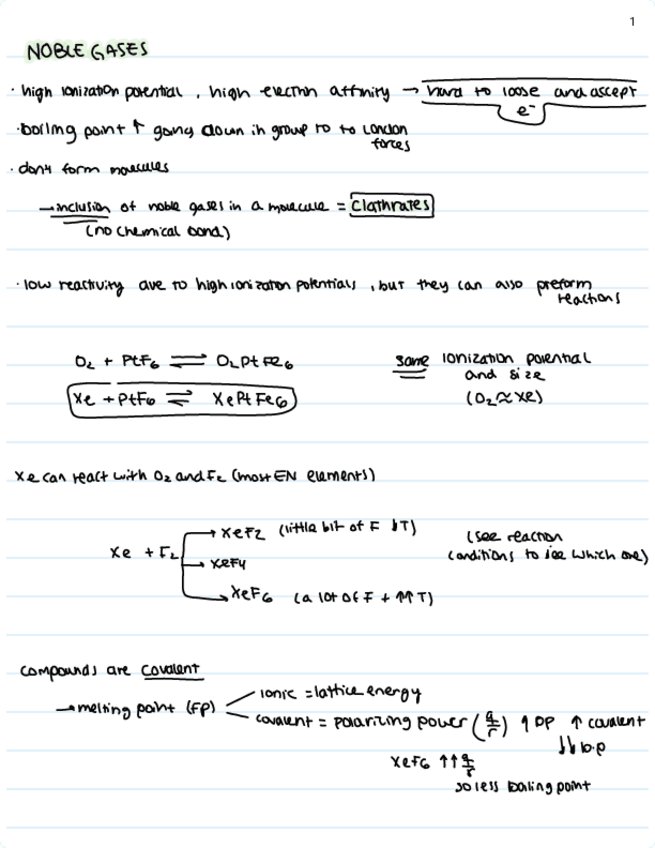 1
NOBLE GASES
· high ionization potential, high electron affinity → hard to loose and accept
e⁻
· boiling point ↑ going down in group 18 to London
forces
· don't form molecules
→ inclusion of noble gases in a molecule = clathrates
(no chemical bond)
· low reactivity due to high ionization potentials, but they can also preform
reactions
O₂ + PtF₆ ⇌ O₂PtFe₆
same ionization potential
and size
Xe + PtF₆ ⇌ XePtFe₆
(O₂ ≈ Xe)
Xe can react with O₂ and F₂ (most EN elements)
→ XeF₂ (little bit of F ↓T)
(see reaction
Xe + F₂
conditions to see which one)
→ XeF₄
→ XeF₆ (a lot of F + ↑↑ T)
compounds are covalent
→ melting point (FP)
ionic = lattice energy
covalent = polarizing power (q/r) ↑ PP ↑ covalent
↓↓ b.p
XeF₆ ↑↑ q/r
so less boiling point